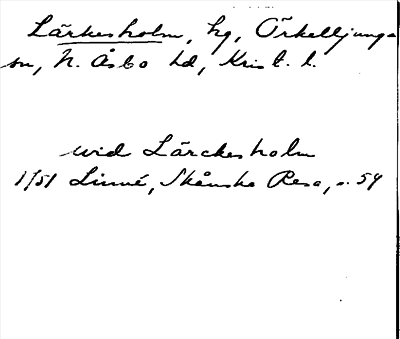 Lärkesholm, hg, Örkelljunga
sn, N. Åsbo hd, Krist. l.
wid Lärckesholm
1751 Linné, Skånska Resa, s. 59